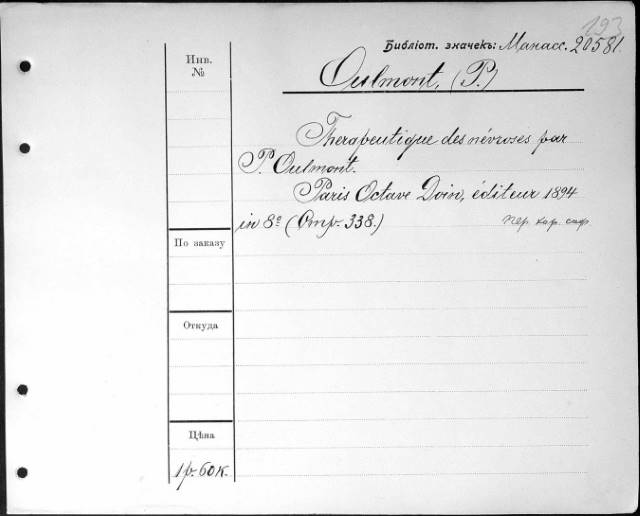 193
Библіот. значекъ: Манасс. 20581.
Инв.
№
Oulmont, (P.)
Therapeutique des névroses par
P. Oulmont.
Paris Octave Doin, éditeur 1894
in 8º (Стр. 338.)
пер. кар. сафр.
По заказу
Откуда
Цѣна
1 р. 60 к.